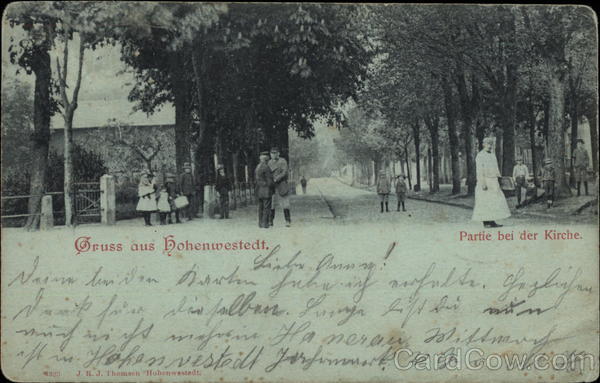 Gruss aus Hohenwestedt.
Partie bei der Kirche.
Liebe Anna!
Deine beiden Karten habe ich erhalte. Herzlichen
Dank für dieselben. Lange bist du nun
auch nicht mehr in Hanerau, Mittwoch
ist in Hohenwestedt Jahrmarkt.
J. R. J. Thomsen Hohenwestedt.
CardCow.com